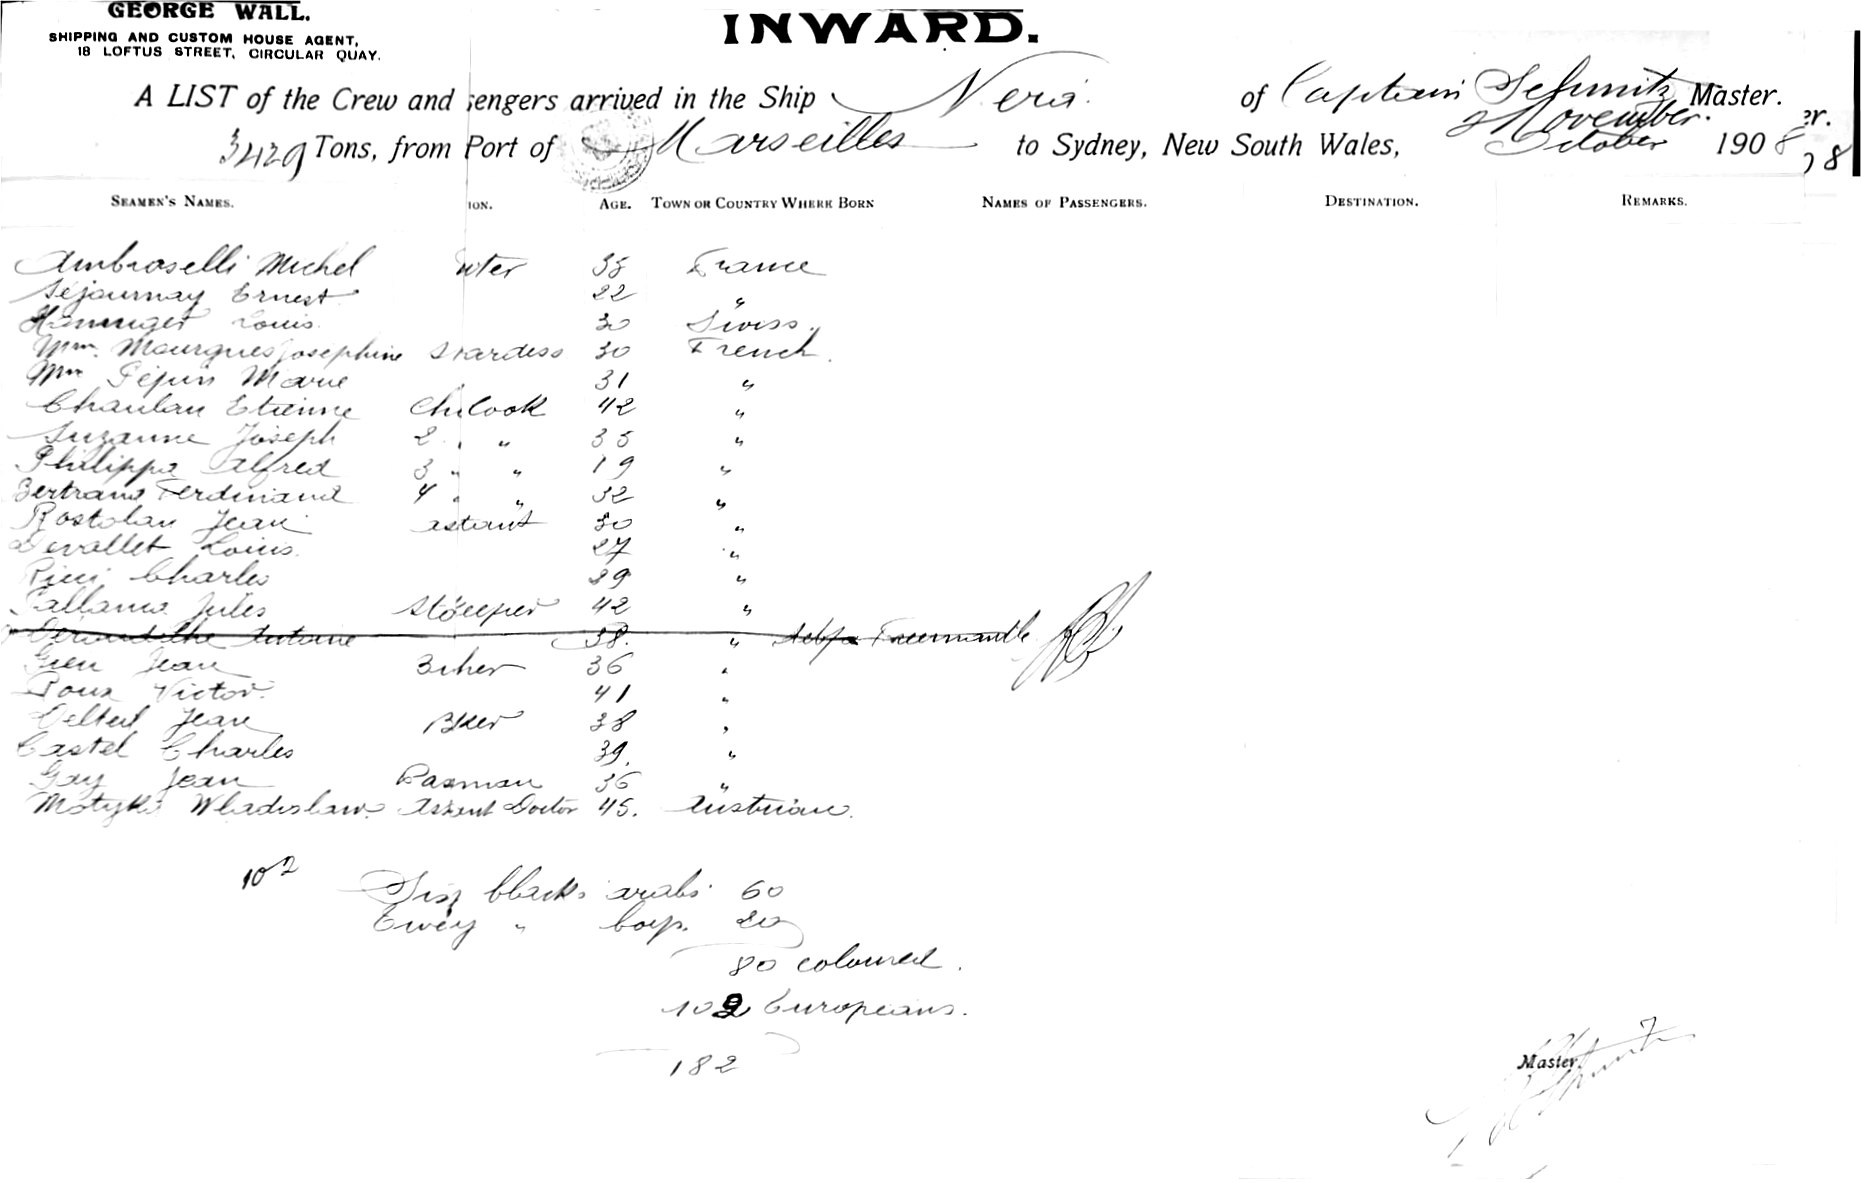 GEORGE WALL.
SHIPPING AND CUSTOM HOUSE AGENT,
18 LOFTUS STREET, CIRCULAR QUAY.
INWARD.
A LIST of the Crew and sengers arrived in the Ship Nera of Captain Schmitz Master.
3429 Tons, from Port of Marseilles to Sydney, New South Wales, 2 November. October 1908
er.
8
SEAMEN'S NAMES. ION. AGE. TOWN OR COUNTRY WHERE BORN NAMES OF PASSENGERS. DESTINATION. REMARKS.
Ambroselli Michel 35 France
Séjournay Ernest 22 "
Louis 30 Swiss.
Mme Mourgues Josephine 30 French.
Mme Pépin Marie 31 "
Chaulan Etienne Ch. Cook 42 "
Suzanne Joseph 2 " " 35 "
Philippe Alfred 3 " " 19 "
Bertrand Ferdinand 4 " " 32 "
Rostolan Jean 30 "
Devallet Louis 27 "
Ricci Charles 29 "
Pallanca Jules 42 "
Antoine 38. " Freemantle
Gien Jean 36 "
Roux Victor 41 "
Jean 38 "
Castel Charles 39. "
Gay Jean 36 "
Wladislaw Doctor 45. Austrian.
102
blacks arabs 60
" boys. 20
80 coloured.
102 Europeans.
182
Master.
Schmitz